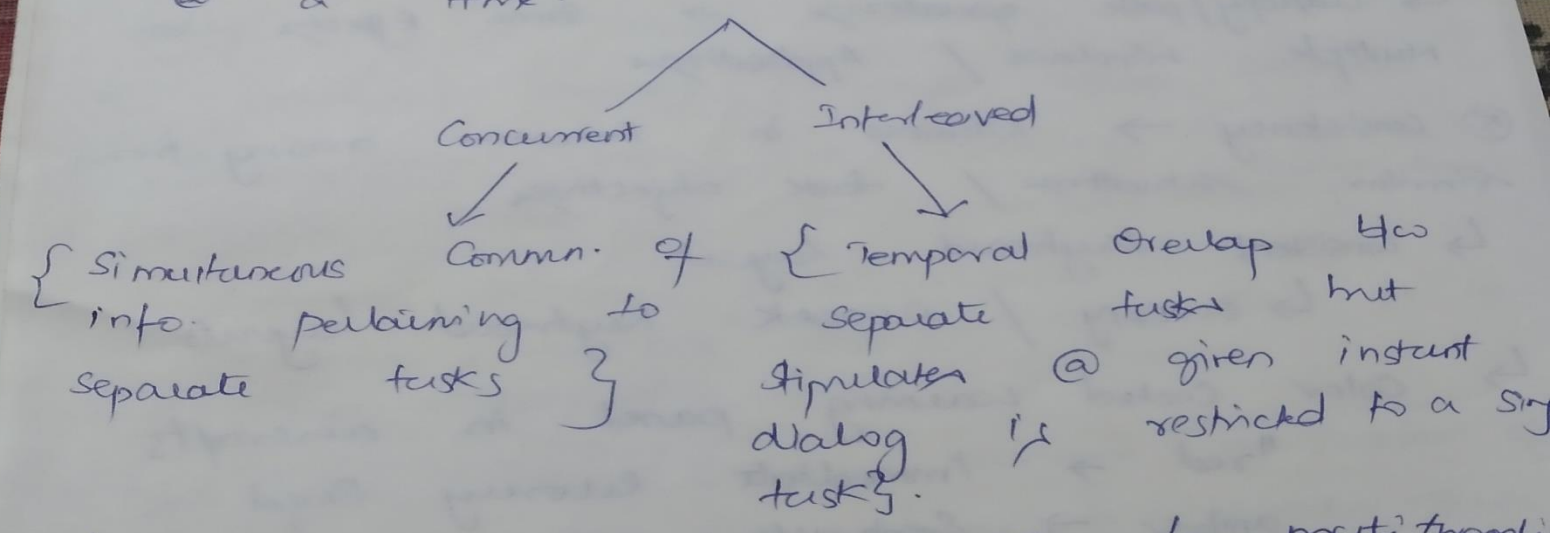 Concurrent
Interleaved
{ Simultaneous Commn. of
info. pertaining to
separate tasks }
{ Temporal Overlap b/w
separate tasks but
stipulates @ given instant
dialog is restricted to a
task}.